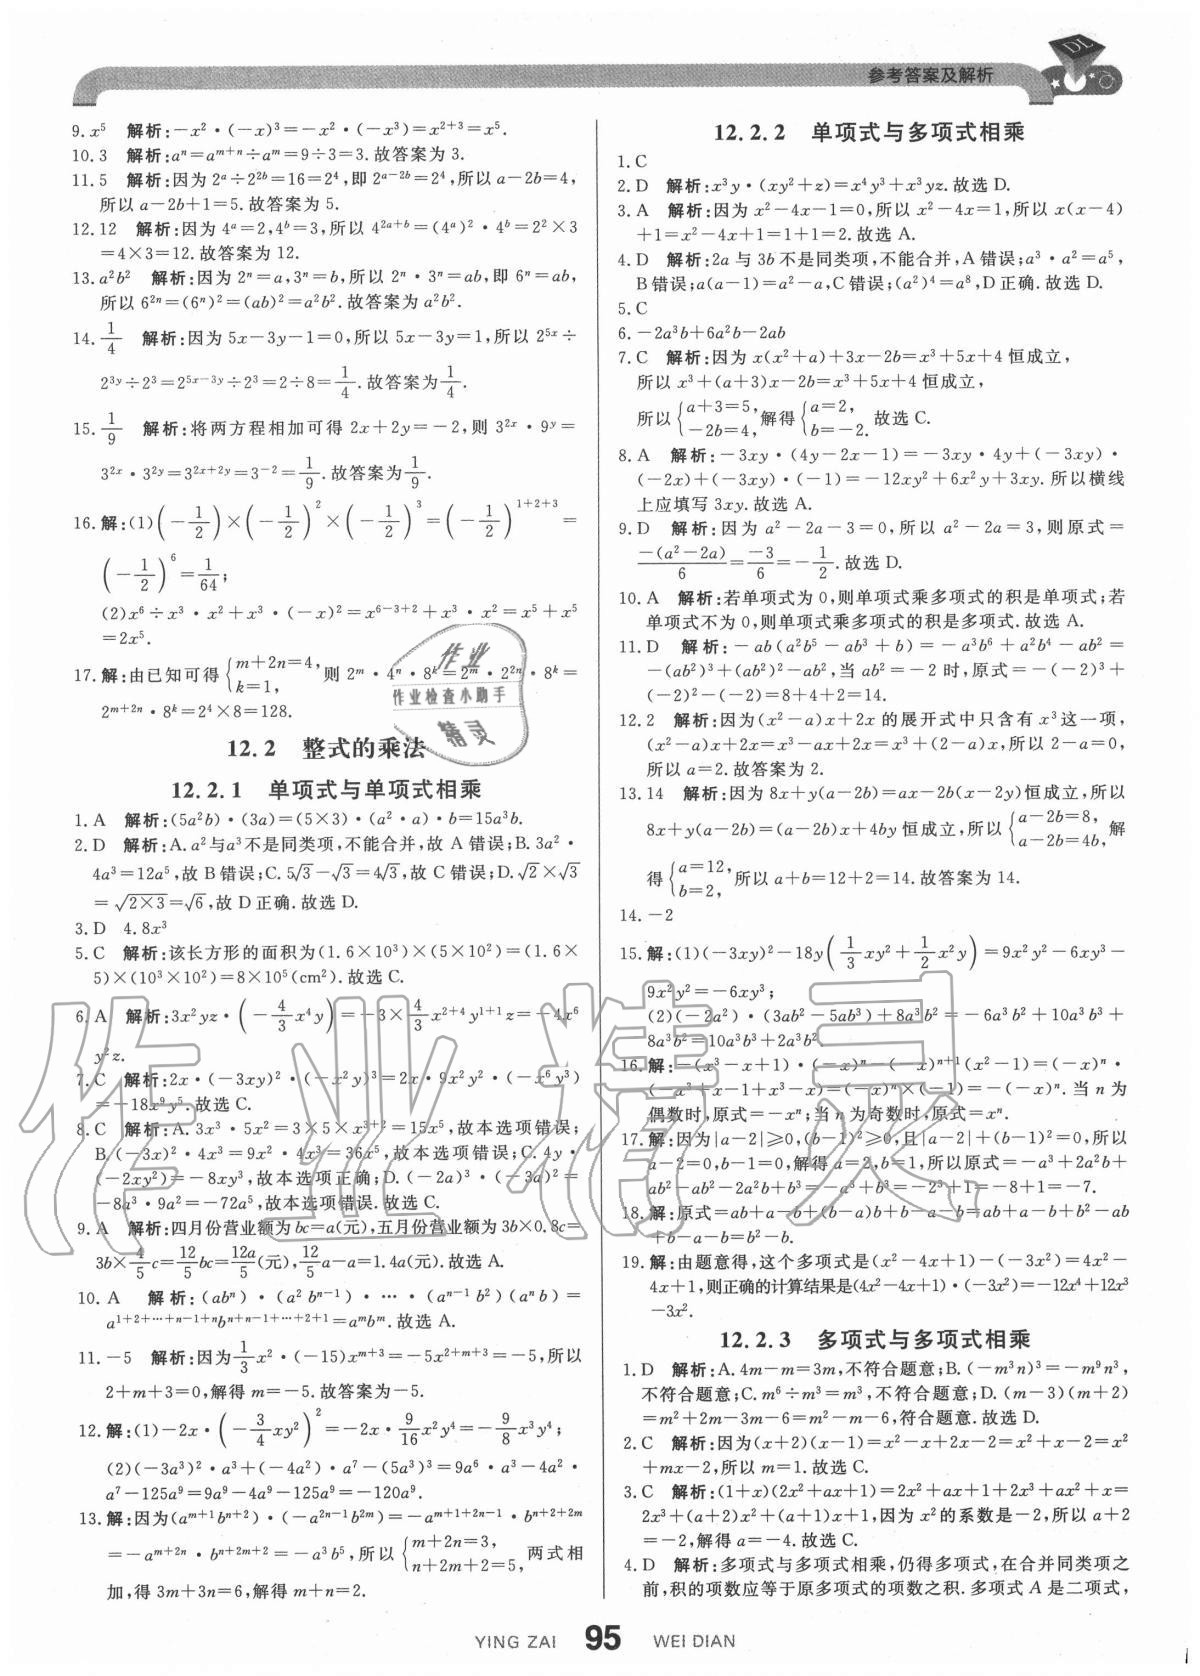 参考答案及解析
DL
9. x⁵ 解析:−x²・(−x)³=−x²・(−x³)=x²⁺³=x⁵.
10. 3 解析:aⁿ=aᵐ⁺ⁿ÷aᵐ=9÷3=3.故答案为 3.
11. 5 解析:因为 2ᵃ÷2²ᵇ=16=2⁴,即 2ᵃ⁻²ᵇ=2⁴,所以 a−2b=4,
所以 a−2b+1=5.故答案为 5.
12. 12 解析:因为 4ᵃ=2,4ᵇ=3,所以 4²ᵃ⁺ᵇ=(4ᵃ)²・4ᵇ=2²×3
=4×3=12.故答案为 12.
13. a²b² 解析:因为 2ⁿ=a,3ⁿ=b,所以 2ⁿ・3ⁿ=ab,即 6ⁿ=ab,
所以 6²ⁿ=(6ⁿ)²=(ab)²=a²b².故答案为 a²b².
14. 1/4 解析:因为 5x−3y−1=0,所以 5x−3y=1,所以 2⁵ˣ÷
2³ʸ÷2³=2⁵ˣ⁻³ʸ÷2³=2÷8=1/4.故答案为 1/4.
15. 1/9 解析:将两方程相加可得 2x+2y=−2,则 3²ˣ・9ʸ=
3²ˣ・3²ʸ=3²ˣ⁺²ʸ=3⁻²=1/9.故答案为 1/9.
16. 解:(1)(−1/2)×(−1/2)²×(−1/2)³=(−1/2)¹⁺²⁺³=
(−1/2)⁶=1/64;
(2)x⁶÷x³・x²+x³・(−x)²=x⁶⁻³⁺²+x³・x²=x⁵+x⁵
=2x⁵.
17. 解:由已知可得{m+2n=4, k=1, 则 2ᵐ・4ⁿ・8ᵏ=2ᵐ・2²ⁿ・8ᵏ=
2ᵐ⁺²ⁿ・8ᵏ=2⁴×8=128.
12.2 整式的乘法
12.2.1 单项式与单项式相乘
1. A 解析:(5a²b)・(3a)=(5×3)・(a²・a)・b=15a³b.
2. D 解析:A. a²与a³不是同类项,不能合并,故 A 错误;B. 3a²・
4a³=12a⁵,故 B错误;C. 5√3−√3=4√3,故 C错误;D. √2×√3
=√(2×3)=√6,故 D 正确.故选 D.
3. D 4. 8x³
5. C 解析:该长方形的面积为(1.6×10³)×(5×10²)=(1.6×
5)×(10³×10²)=8×10⁵(cm²).故选 C.
6. A 解析:3x²yz・(−4/3x⁴y)=−3×4/3x²⁺⁴y¹⁺¹z=−4x⁶
y²z.
7. C 解析:2x・(−3xy)²・(−x²y)³=2x・9x²y²・(−x⁶y³)
=−18x⁹y⁵.故选 C.
8. C 解析:A. 3x³・5x²=3×5×x³⁺²=15x⁵,故本选项错误;
B(−3x)²・4x³=9x²・4x³=36x⁵,故本选项错误;C. 4y・
(−2xy²)=−8xy³,故本选项正确;D. (−2a)³・(−3a)²=
−8a³・9a²=−72a⁵,故本选项错误.故选 C.
9. A 解析:四月份营业额为 bc=a(元),五月份营业额为 3b×0.8c=
3b×4/5c=12/5bc=12a/5(元),12/5a−a=1.4a(元).故选 A.
10. A 解析:(abⁿ)・(a²bⁿ⁻¹)・…・(aⁿ⁻¹b²)(aⁿb)=
a¹⁺²⁺…⁺ⁿ⁻¹⁺ⁿbⁿ⁺ⁿ⁻¹⁺…⁺²⁺¹=aᵐbᵐ.故选 A.
11. −5 解析:因为1/3x²・(−15)xᵐ⁺³=−5x²⁺ᵐ⁺³=−5,所以
2+m+3=0,解得 m=−5.故答案为−5.
12. 解:(1)−2x・(−3/4xy²)²=−2x・9/16x²y⁴=−9/8x³y⁴;
(2)(−3a³)²・a³+(−4a²)・a⁷−(5a³)³=9a⁶・a³−4a²・
a⁷−125a⁹=9a⁹−4a⁹−125a⁹=−120a⁹.
13. 解:因为(aᵐ⁺¹bⁿ⁺²)・(−a²ⁿ⁻¹b²ᵐ)=−aᵐ⁺¹⁺²ⁿ⁻¹・bⁿ⁺²⁺²ᵐ
=−aᵐ⁺²ⁿ・bⁿ⁺²ᵐ⁺²=−a³b⁵,所以{m+2n=3, n+2m+2=5, 两式相
加,得 3m+3n=6,解得 m+n=2.
12.2.2 单项式与多项式相乘
1. C
2. D 解析:x³y・(xy²+z)=x⁴y³+x³yz.故选 D.
3. A 解析:因为 x²−4x−1=0,所以 x²−4x=1,所以 x(x−4)
+1=x²−4x+1=1+1=2.故选 A.
4. D 解析:2a 与 3b 不是同类项,不能合并,A 错误;a³・a²=a⁵,
B错误;a(a−1)=a²−a,C错误;(a²)⁴=a⁸,D正确.故选 D.
5. C
6. −2a³b+6a²b−2ab
7. C 解析:因为 x(x²+a)+3x−2b=x³+5x+4 恒成立,
所以 x³+(a+3)x−2b=x³+5x+4 恒成立,
所以{a+3=5, −2b=4, 解得{a=2, b=−2. 故选 C.
8. A 解析:−3xy・(4y−2x−1)=−3xy・4y+(−3xy)・
(−2x)+(−3xy)・(−1)=−12xy²+6x²y+3xy.所以横线
上应填写 3xy.故选 A.
9. D 解析:因为 a²−2a−3=0,所以 a²−2a=3,则原式=
−(a²−2a)/6=−3/6=−1/2.故选 D.
10. A 解析:若单项式为 0,则单项式乘多项式的积是单项式;若
单项式不为 0,则单项式乘多项式的积是多项式.故选 A.
11. D 解析:−ab(a²b⁵−ab³+b)=−a³b⁶+a²b⁴−ab²=
−(ab²)³+(ab²)²−ab²,当 ab²=−2 时,原式=−(−2)³+
(−2)²−(−2)=8+4+2=14.
12. 2 解析:因为(x²−a)x+2x 的展开式中只含有 x³这一项,
(x²−a)x+2x=x³−ax+2x=x³+(2−a)x,所以 2−a=0,
所以 a=2.故答案为 2.
13. 14 解析:因为 8x+y(a−2b)=ax−2b(x−2y)恒成立,所以
8x+y(a−2b)=(a−2b)x+4by 恒成立,所以{a−2b=8, a−2b=4b, 解
得{a=12, b=2, 所以 a+b=12+2=14.故答案为 14.
14. −2
15. 解:(1)(−3xy)²−18y(1/3xy²+1/2x²y)=9x²y²−6xy³−
9x²y²=−6xy³;
(2)(−2a²)・(3ab²−5ab³)+8a³b²=−6a³b²+10a³b³+
8a³b²=10a³b³+2a³b².
16. 解:−(x³−x+1)・(−x)ⁿ−(−x)ⁿ⁺¹(x²−1)=(−x)ⁿ・
(−x³+x−1+x³−x)=(−x)ⁿ×(−1)=−(−x)ⁿ.当 n 为
偶数时,原式=−xⁿ;当 n 为奇数时,原式=xⁿ.
17. 解:因为|a−2|≥0,(b−1)²≥0,且|a−2|+(b−1)²=0,所以
a−2=0,b−1=0,解得 a=2,b=1,所以原式=−a³+2a²b+
ab²−ab²−2a²b+b³=−a³+b³=−2³+1=−8+1=−7.
18. 解:原式=ab+a−b+(b−a)b+b−a−b=ab+a−b+b²−ab
+b−a−b=b²−b.
19. 解:由题意得,这个多项式是(x²−4x+1)−(−3x²)=4x²−
4x+1,则正确的计算结果是(4x²−4x+1)・(−3x²)=−12x⁴+12x³
−3x².
12.2.3 多项式与多项式相乘
1. D 解析:A. 4m−m=3m,不符合题意;B. (−m³n)³=−m⁹n³,
不符合题意;C. m⁶÷m³=m³,不符合题意;D. (m−3)(m+2)
=m²+2m−3m−6=m²−m−6,符合题意.故选 D.
2. C 解析:因为(x+2)(x−1)=x²−x+2x−2=x²+x−2=x²
+mx−2,所以 m=1.故选 C.
3. C 解析:(1+x)(2x²+ax+1)=2x²+ax+1+2x³+ax²+x=
2x³+(a+2)x²+(a+1)x+1,因为 x²的系数是−2,所以 a+2
=−2,解得 a=−4.故选 C.
4. D 解析:多项式与多项式相乘,仍得多项式,在合并同类项之
前,积的项数应等于原多项式的项数之积.多项式 A 是二项式,
作业
作业检查小助手
精灵
作业精灵
YING ZAI 95 WEI DIAN